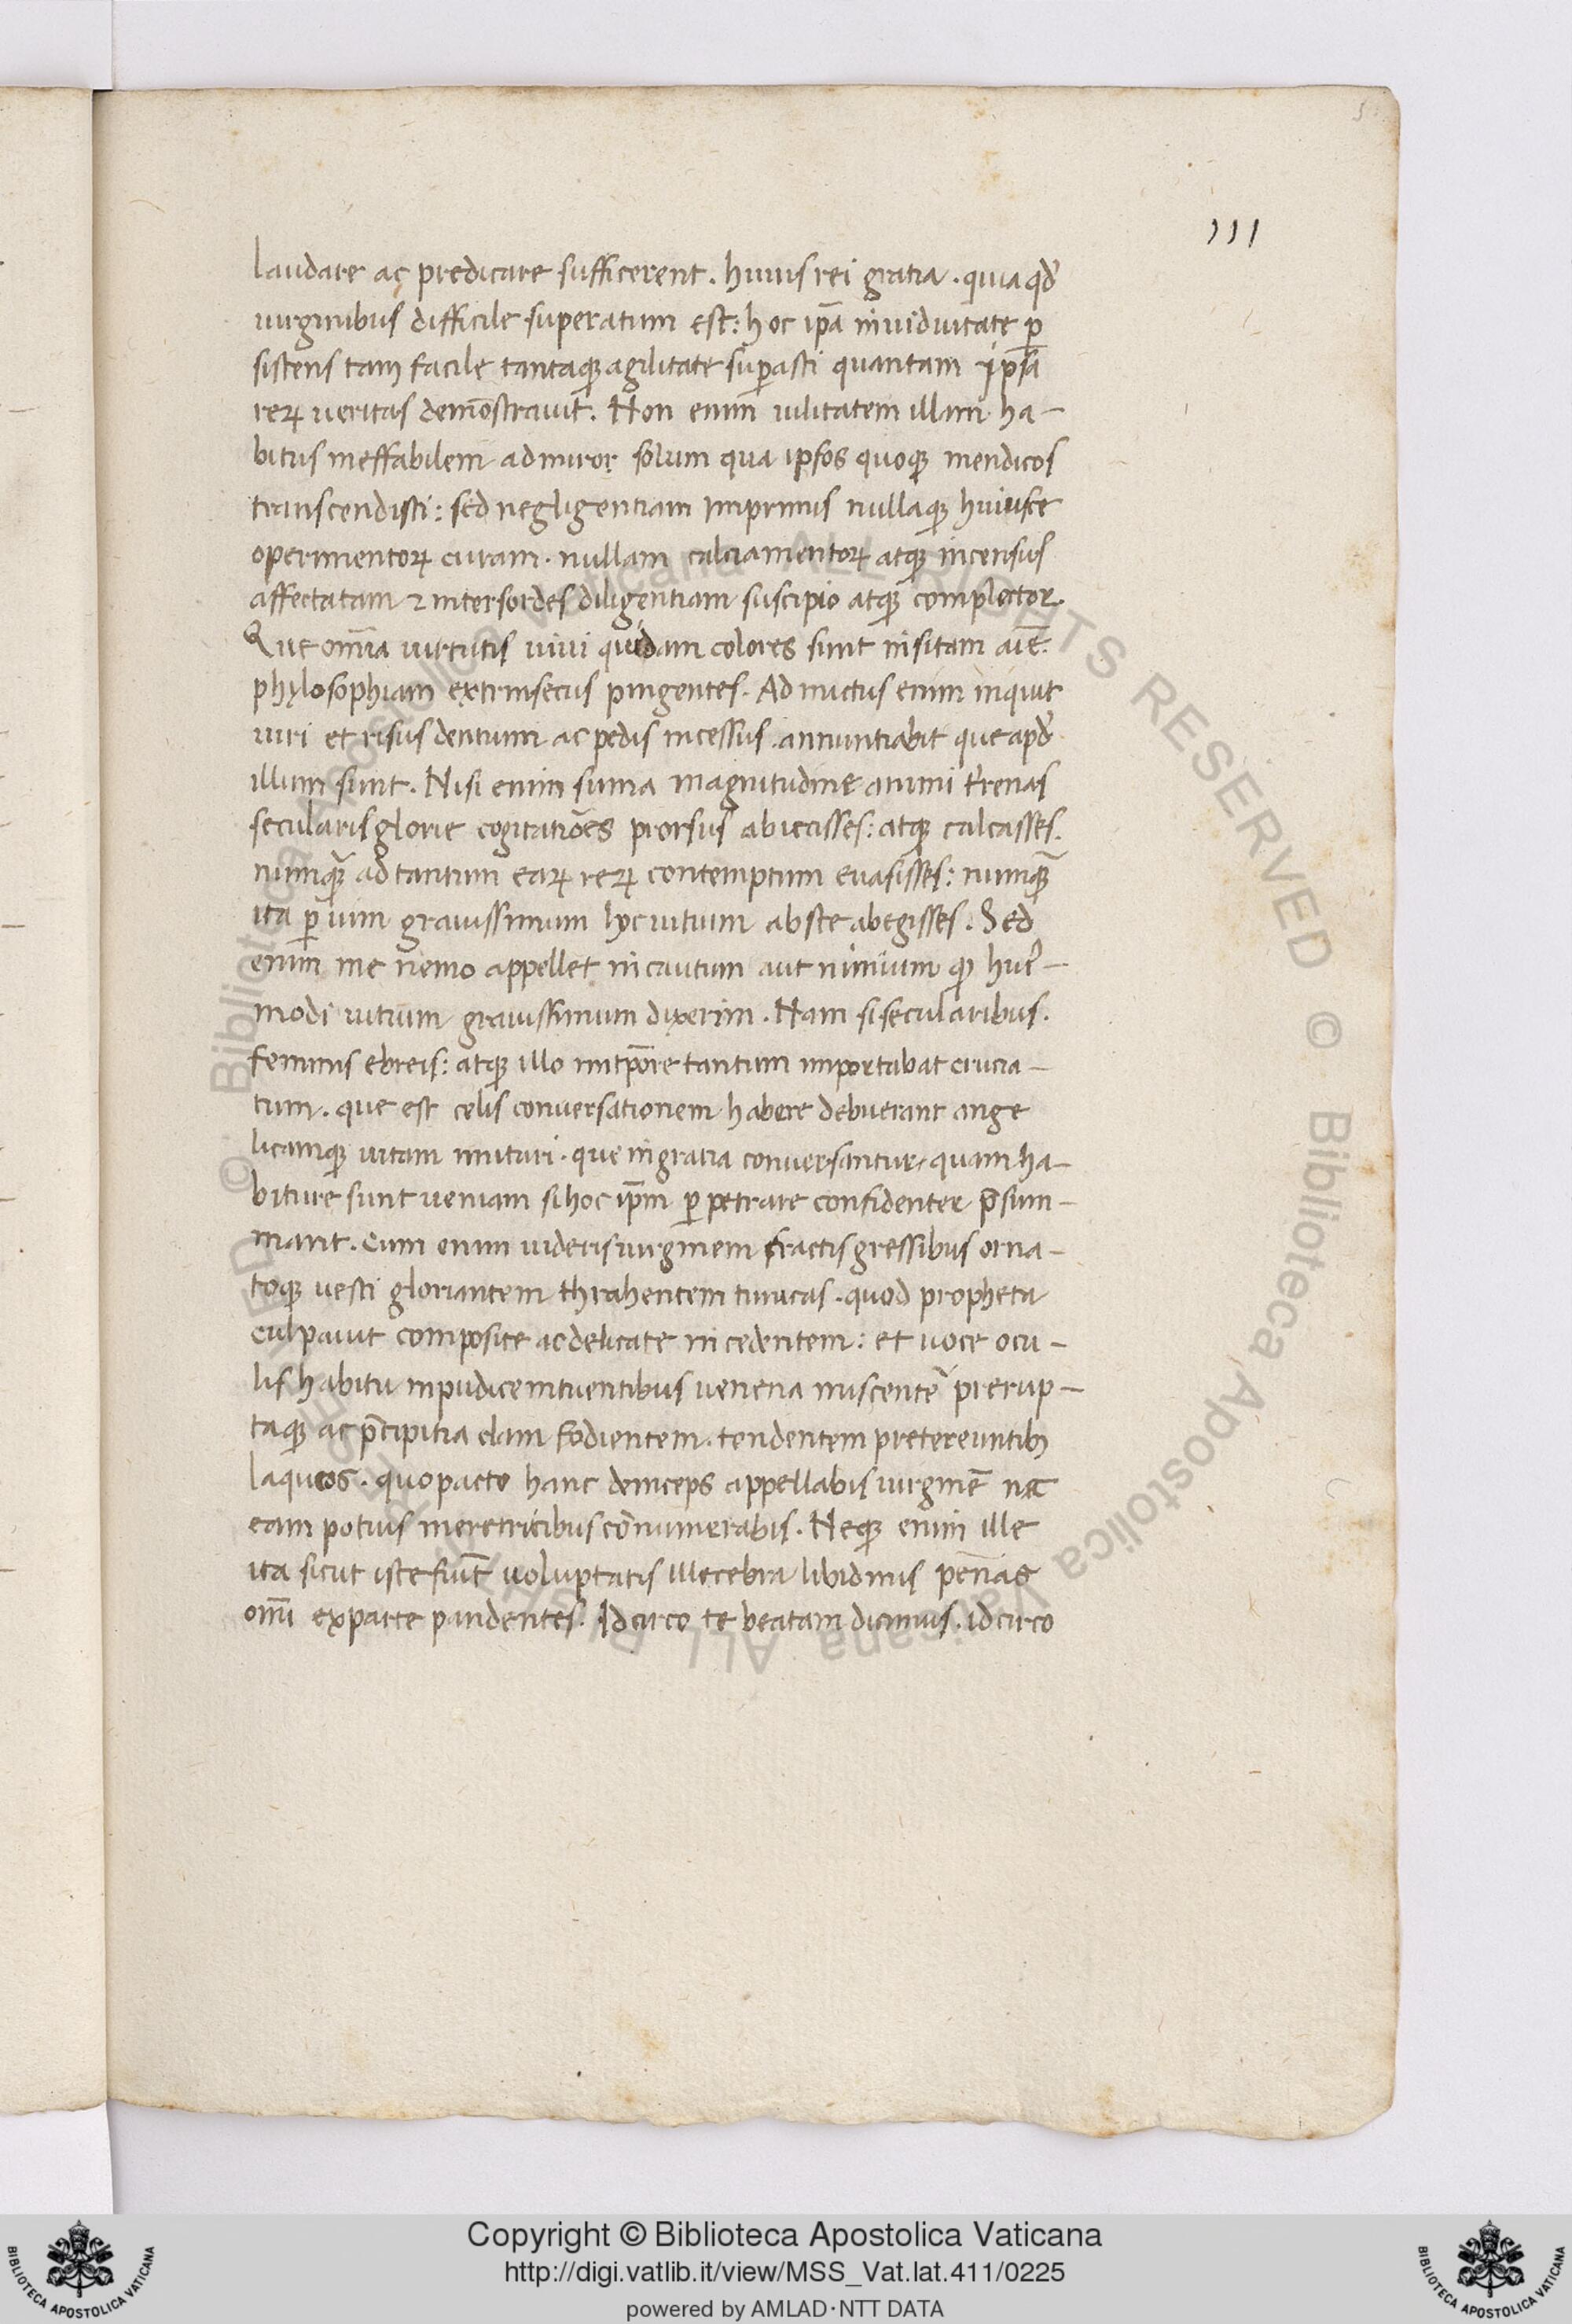 111
laudare ac predicare sufficerent. huius rei gratia. quia qd̓
uirginibus difficile superatum est: hoc ip̄a in uiduitate ꝑ
sistens tam facile tantaqȝ agilitate suꝑasti quantam ipsa
reꝝ ueritas demōstrauit. Non enim uilitatem illam ha-
bitus ineffabilem admiror solum qua ipsos quoqȝ mendicos
transcendisti: sed negligentiam imprimis nullaqȝ huiusce
operimentoꝝ curam. nullam calciamentoꝝ atqȝ incensus
affectatam ⁊ inter sordes diligentiam suscipio atqȝ complector.
Que om̄ia uirtutis uiui quidam colores sunt insitam aīe
phylosophiam extrinsecus pingentes. Ad nuctus enim inquit
uiri et risus dentium ac pedis incessus. annuntiabit que apd̓
illum sunt. Nisi enim suma magnitudine animi t̓renas
secularis glorie cogitatiōes prorsus abiecisses: atqȝ calcasses.
numqȝ̄ ad tantum eaꝝ reꝝ contemptum euasisses: numqȝ̄
ita ꝑ uim grauissimum hyc uitium abs te abegisses. Sed
enim me nemo appellet incautum aut nimium qȝ hui̓-
modi uitium grauissimum dixerim. Nam si secularibus.
feminis ebreis: atqȝ illo in tp̄ore tantum importabat crucia-
tum. que est celis conuersationem habere debuerant ange
licamqȝ uitam imitari. que in gratia conuersantur. quam ha-
biture sunt ueniam si hoc ip̄m ꝑ petrare confidenter p̄sum-
mant. Cum enim uideris uirginem fractis gressibus orna-
toqȝ uesti gloriantem thrahentem tunicas. quod propheta
culpauit composite ac delicate incedentem: et uoce ocu-
lis habitu inpudice intuentibus uenena miscentē prerup-
taqȝ ac p̄cipitia clam fodientem. tendentem pretereuntibȝ
laqueos. quo pacto hanc deinceps appellabis uirginē nec
eam potius meretricibus connumerabis. Neqȝ enim ille
ita sicut iste fiūt uoluptatis illecebra libidinis pennas
om̄i ex parte pandentes. Idcirco te beatam dicimus. idcirco
Copyright © Biblioteca Apostolica Vaticana
http://digi.vatlib.it/view/MSS_Vat.lat.411/0225
powered by AMLAD·NTT DATA